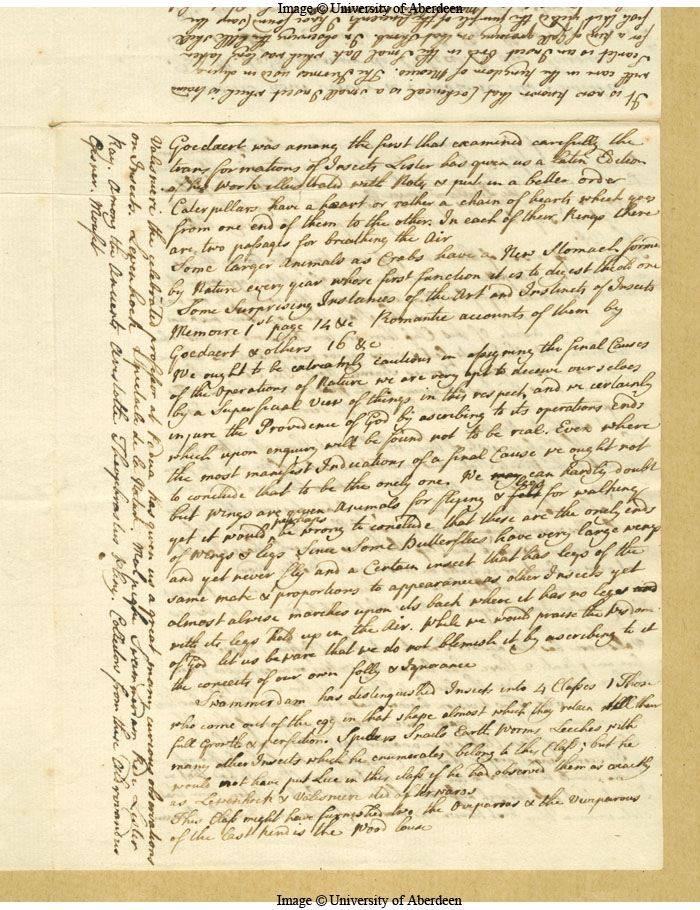 Image © University of Aberdeen
It is now known that Cochineal is a small Insect which is found
will over in the Kingdom of Mexico. The Kermes used in dying
Scarlet is an Insect
Goedaert was among the first that examined carefully the
transformations of Insects Lister has given us a latin Edition
of his Work illustrated with Notes & put in a better order
Caterpillars have a heart or rather a chain of hearts which goes
from one end of them to the other. In each of their Rings there
are two passages for breathing the Air
Some larger Animals as Crabs have a New Stomach formed
by Nature every year whose first function it is to digest the old one
Some Surprising Instances of the Art and Instincts of Insects
Memoire 1st page 14 &c Romantic accounts of them by
Goedaert & others 16 &c
We ought to be extreamly cautious in assigning the final Causes
of the Operations of Nature we are very apt to deceive ourselves
by a Superficial View of things in this respect, and we certainly
injure the Providence of God by ascribing to its operations Ends
which upon enquiry will be found not to be real. Even where
the most manifest Indications of a final Cause we ought not
to conclude that to be the onely one. We may can hardly doubt
but Wings are given Animals for flying & feet legs for walking
yet it would perhaps be wrong to conclude that these are the onely ends
of Wings & legs Since Some Butterflies have very large wings
and yet never fly and a Certain insect that has legs of the
same make & proportions to appearance as other Insects yet
almost alwise marches upon its back where it has no legs and
with its legs held up in the Air. While we would praise the Wisdom
of God let us beware that we do not blemish it by ascribing to it
the conceits of our own folly & Ignorance
Swammerdam has distinguished Insects into 4 Classes 1 Those
who come out of the egg in that shape almost which they retain till their
full Growth & perfection. Spiders Snails Earth Worms Leeches with
many other Insects which he enumerates belong to this Class; but he
would not have put Lice in this class if he had observed them as exactly
as Lewenhock & Valisnieri did afterwards
This Class might have furnished two the Oviparous & the Viviparous
of the last kind is the Wood louse
Valisnieri the celebrated professor at Padua has given us a great many curious observations
on Insects. Lewenhock Spectacle de la Nature. Malpighi Swammerdam Redi Lister
Ray. Among the Ancients Aristotle Theophrastus & Pliny. Collectors from these Aldrovandus
Gesner. Moufet
Image © University of Aberdeen